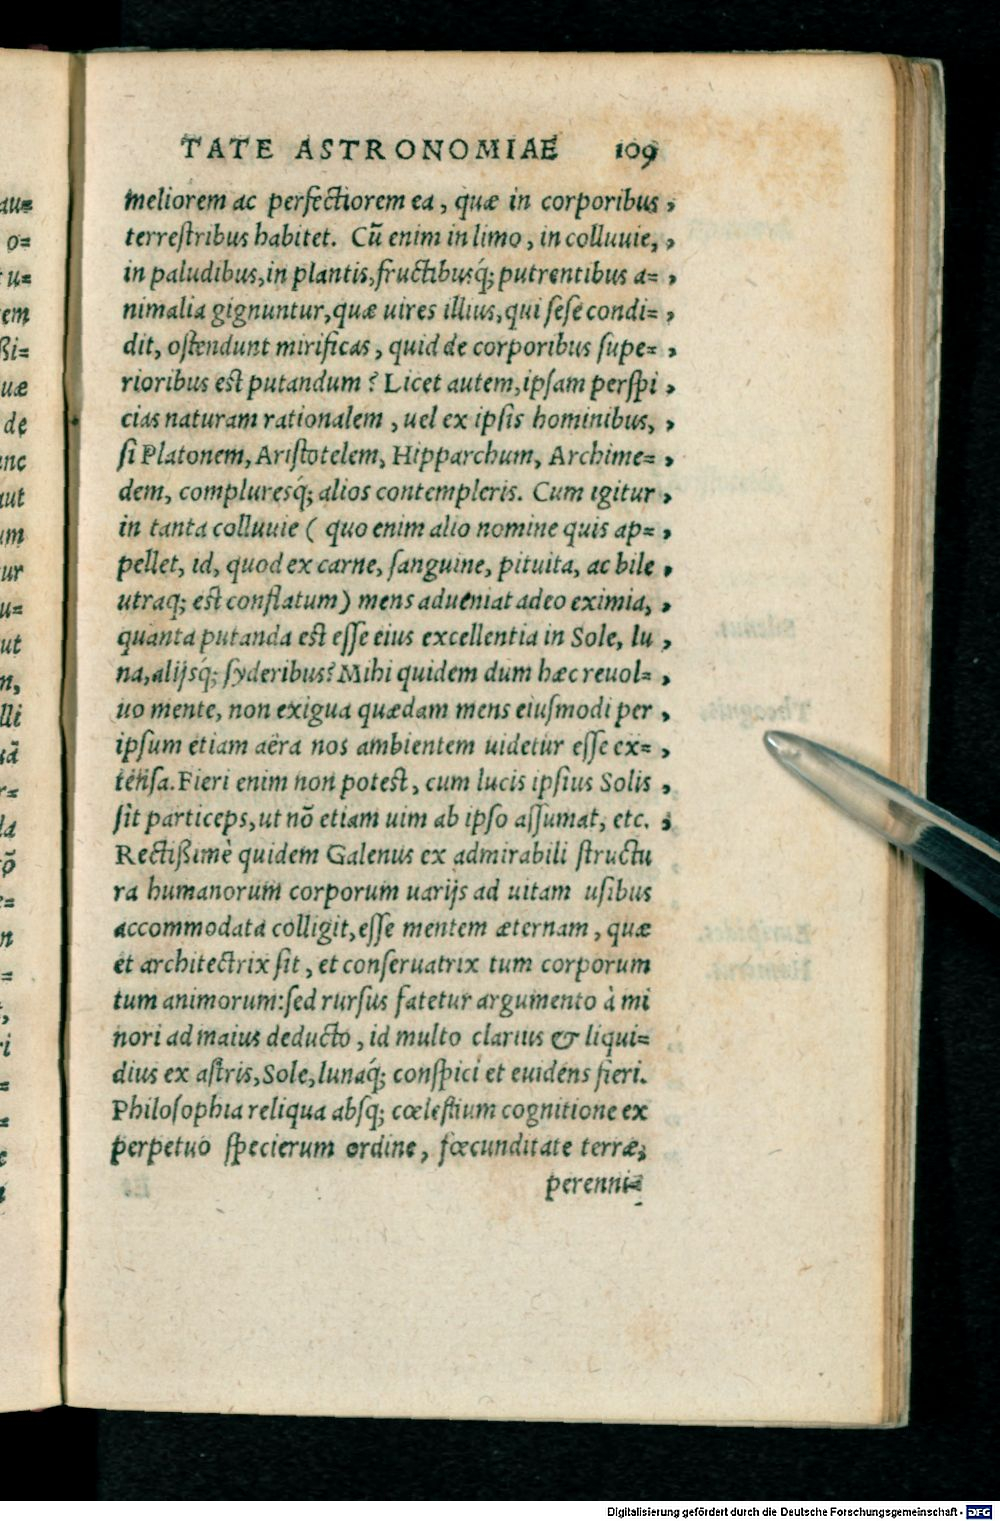 TATE ASTRONOMIAE 109
meliorem ac perfectiorem ea, quæ in corporibus ,
terrestribus habitet. Cũ enim in limo, in colluuie, ,
in paludibus, in plantis, fructibusq́; putrentibus a= ,
nimalia gignuntur, quæ uires illius, qui sese condi= ,
dit, ostendunt mirificas, quid de corporibus supe= ,
rioribus est putandum? Licet autem, ipsam perspi ,
cias naturam rationalem, uel ex ipsis hominibus, ,
si Platonem, Aristotelem, Hipparchum, Archime= ,
dem, compluresq́; alios contempleris. Cum igitur ,
in tanta colluuie ( quo enim alio nomine quis ap= ,
pellet, id, quod ex carne, sanguine, pituita, ac bile ,
utraq; est conflatum) mens adueniat adeo eximia, ,
quanta putanda est esse eius excellentia in Sole, lu ,
na, alijsq́; syderibus? Mihi quidem dum hæc reuol= ,
uo mente, non exigua quædam mens eiusmodi per ,
ipsum etiam aëra nos ambientem uidetur esse ex= ,
tensa. Fieri enim non potest, cum lucis ipsius Solis ,
sit particeps, ut nõ etiam uim ab ipso assumat, etc. ,
Rectißimè quidem Galenus ex admirabili structu
ra humanorum corporum uarijs ad uitam usibus
accommodata colligit, esse mentem æternam, quæ
et architectrix sit, et conseruatrix tum corporum
tum animorum: sed rursus fatetur argumento à mi
nori ad maius deducto, id multo clarius & liqui=
dius ex astris, Sole, lunaq́; conspici et euidens fieri.
Philosophia reliqua absq; cœlestium cognitione ex
perpetuo specierum ordine, fœcunditate terræ,
perenni=
au=
o=
tu=
em
ßi=
uæ
de
unc
aut
um
ur
u=
ut
n,
lli
r=
n
=
,
=
=
Digitalisierung gefördert durch die Deutsche Forschungsgemeinschaft - DFG